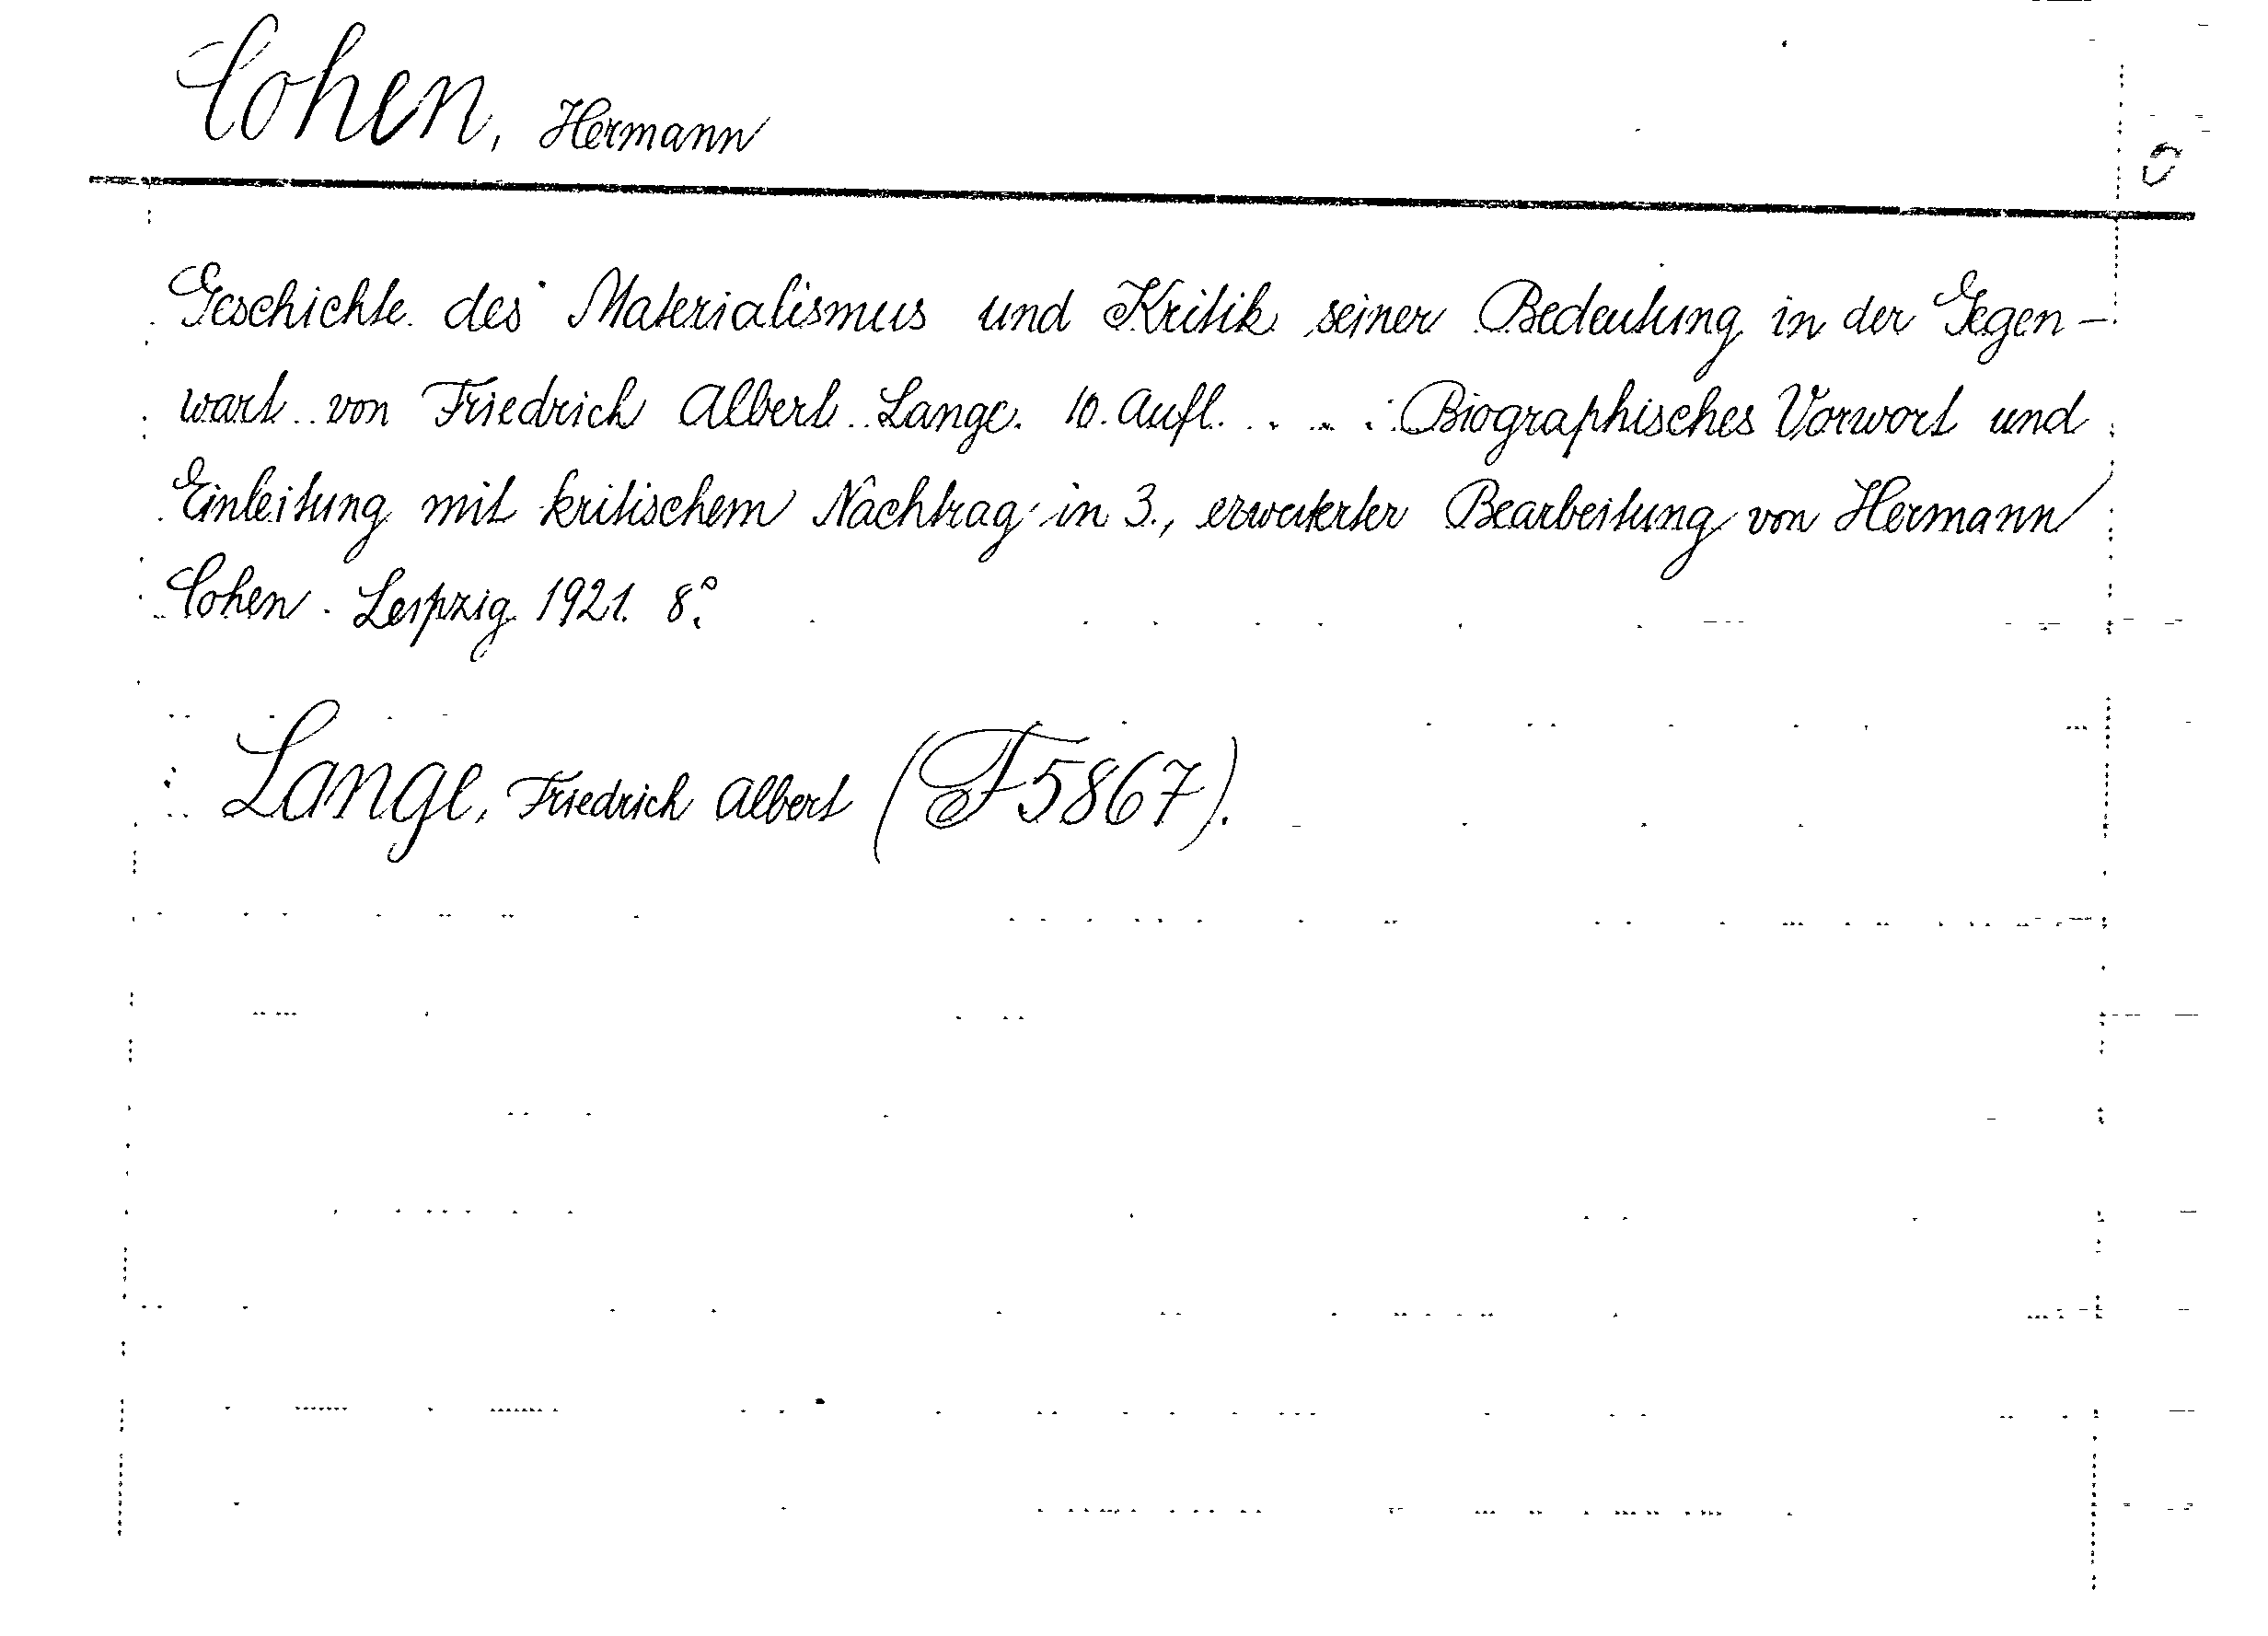 Cohen, Hermann
Geschichte des Materialismus und Kritik seiner Bedeutung in der Gegen-
wart von Friedrich Albert Lange. 10. Aufl. . . . Biographisches Vorwort und
Einleitung mit kritischem Nachtrag in 3., erweiterter Bearbeitung von Hermann
Cohen. Leipzig 1921. 8°.
Lange, Friedrich Albert (F5867).